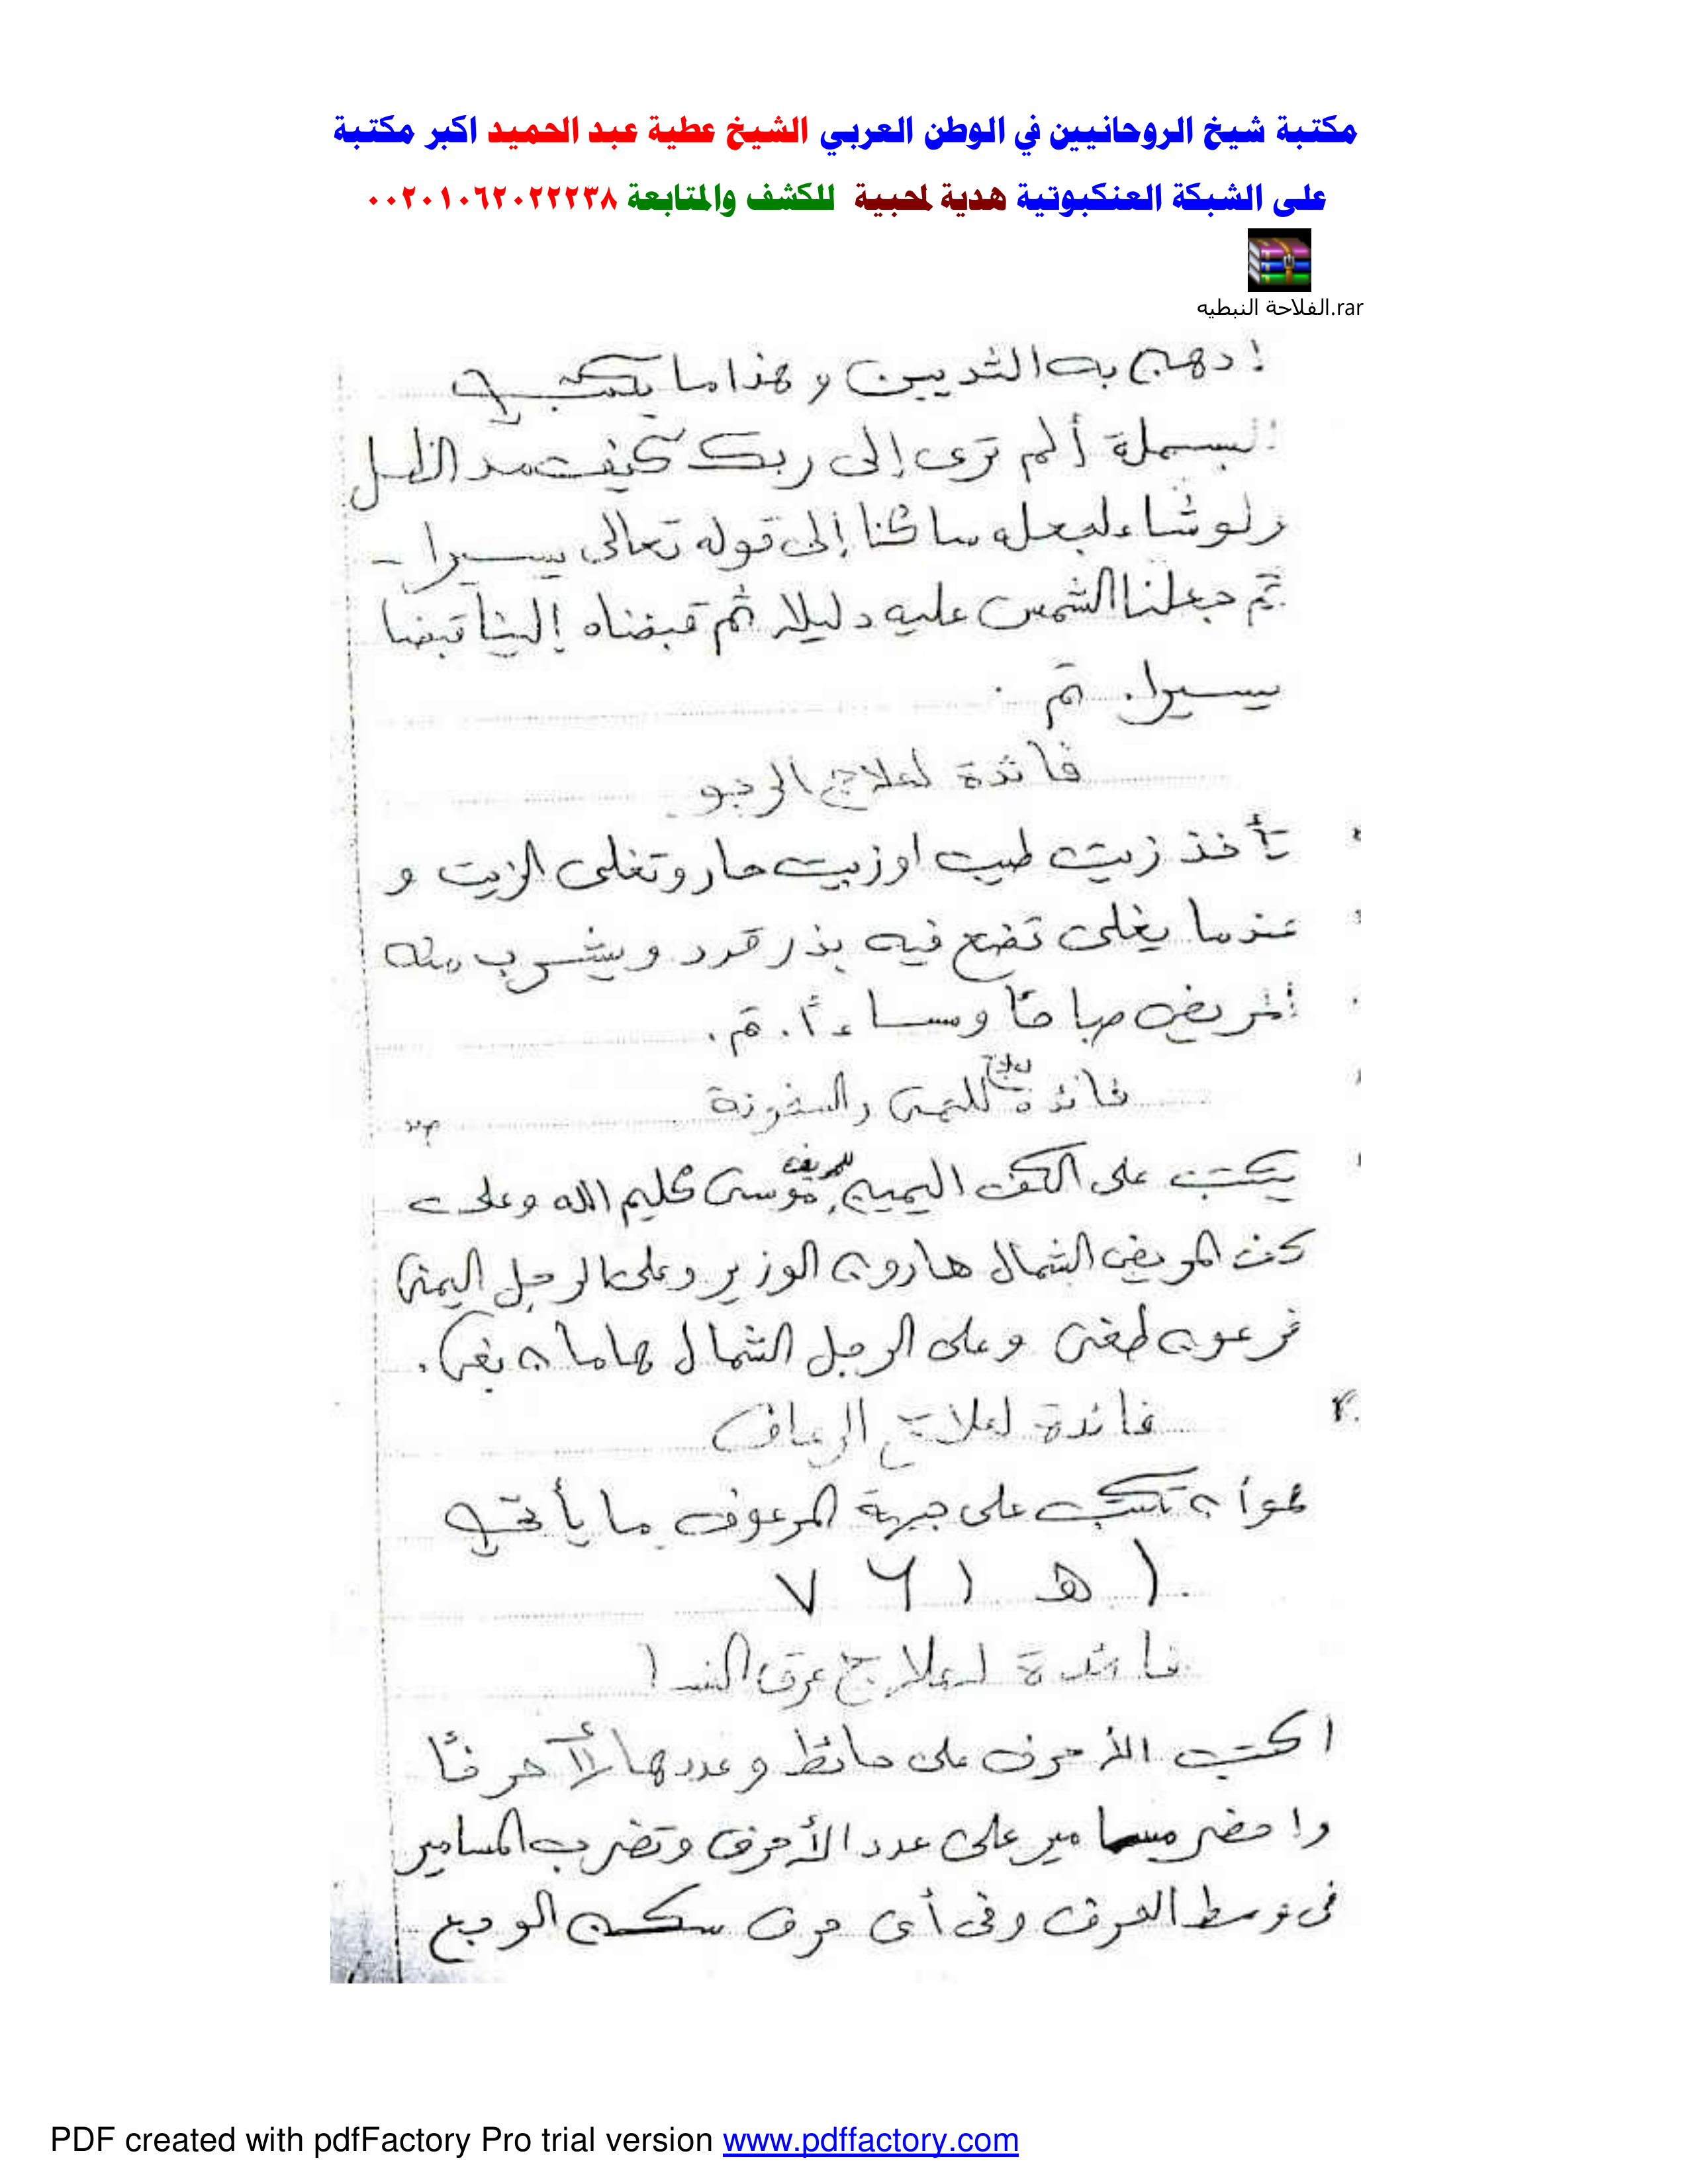 مكتبة شيخ الروحانيين في الوطن العربي الشيخ عطية عبد الحميد اكبر مكتبة
على الشبكة العنكبوتية هدية لمحبية للكشف والمتابعة ٠٠٢٠١٠٦٢٠٢٢٢٣٨
الفلاحة النبطيه.rar
ادهن به الثديين وهذا ما يكتب
البسملة ألم ترى إلى ربك كيف مد الظل
ولو شاء لجعله ساكنا إلى قوله تعالى يسيرا -
ثم جعلنا الشمس عليه دليلا ثم قبضناه إلينا قبضا
يسيرا. تم.
فائدة لعلاج الربو
تأخذ زيت طيب او زيت حار وتغلى الزيت و
عندما يغلى تضع فيه بذر قرد ويشرب منه
المريض صباحًا ومساءًا. تم.
فائدة لعلاج للحمى والسخونة
يكتب على الكف اليمين للمريض موسى كليم الله وعلى
كف المريض الشمال هارون الوزير وعلى الرجل اليمنى
فرعون طغى وعلى الرجل الشمال هامان بغى.
فائدة لعلاج الرعاف
هو أن تكتب على جبهة المرعوف ما يأتى
ا هـ ا ٧
فائدة لعلاج عرق النسا
اكتب الأحرف على حائط وعددها حرفًا
واحضر مسامير على عدد الأحرف وتضرب المسامير
فى وسط الحرف وفى أى حرف سكن الوجع
PDF created with pdfFactory Pro trial version www.pdffactory.com